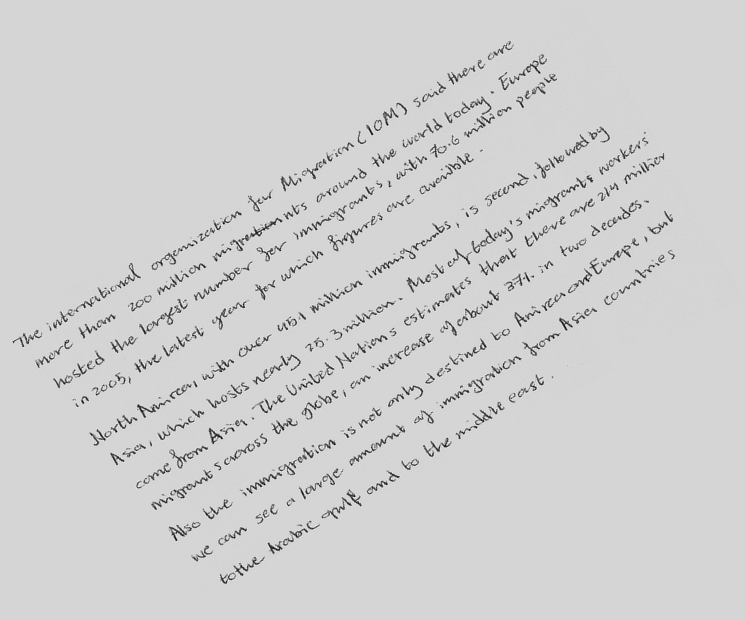 The international organization for Migration (IOM) said there are
more than 200 million migrationnts around the world today. Europe
hosted the largest number for immigrants, with 70.6 million people
in 2005, the latest year for which figures are avaible.
North Amirca, with over 45.1 million immigrants, is second, followed by
Asia, which hosts nearly 25.3 million. Most of today's migrants workers'
come from Asia. The United Nations estimates that there are 214 million
migrants across the globe, an increase of about 37% in two decades.
Also the immigration is not only destined to Amirca and Europe, but
we can see a large amount of immigration from Asia countries
to the Arabic gulf and to the middle east.